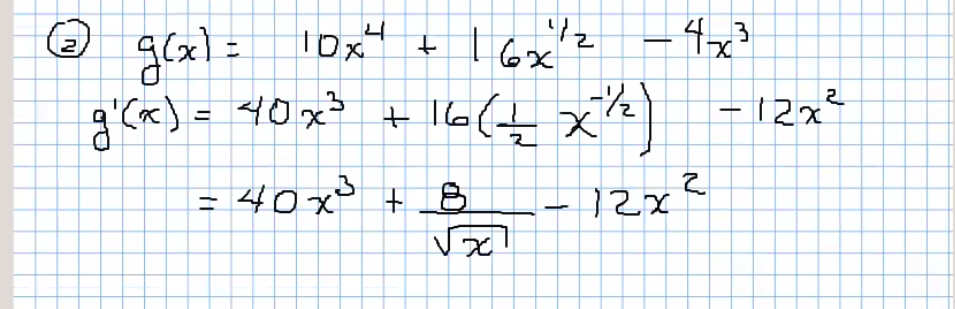 ② g(x) = 10x⁴ + 16x^1/2 - 4x³
g'(x) = 40x³ + 16(1/2 x^-1/2) - 12x²
= 40x³ + 8/√x - 12x²